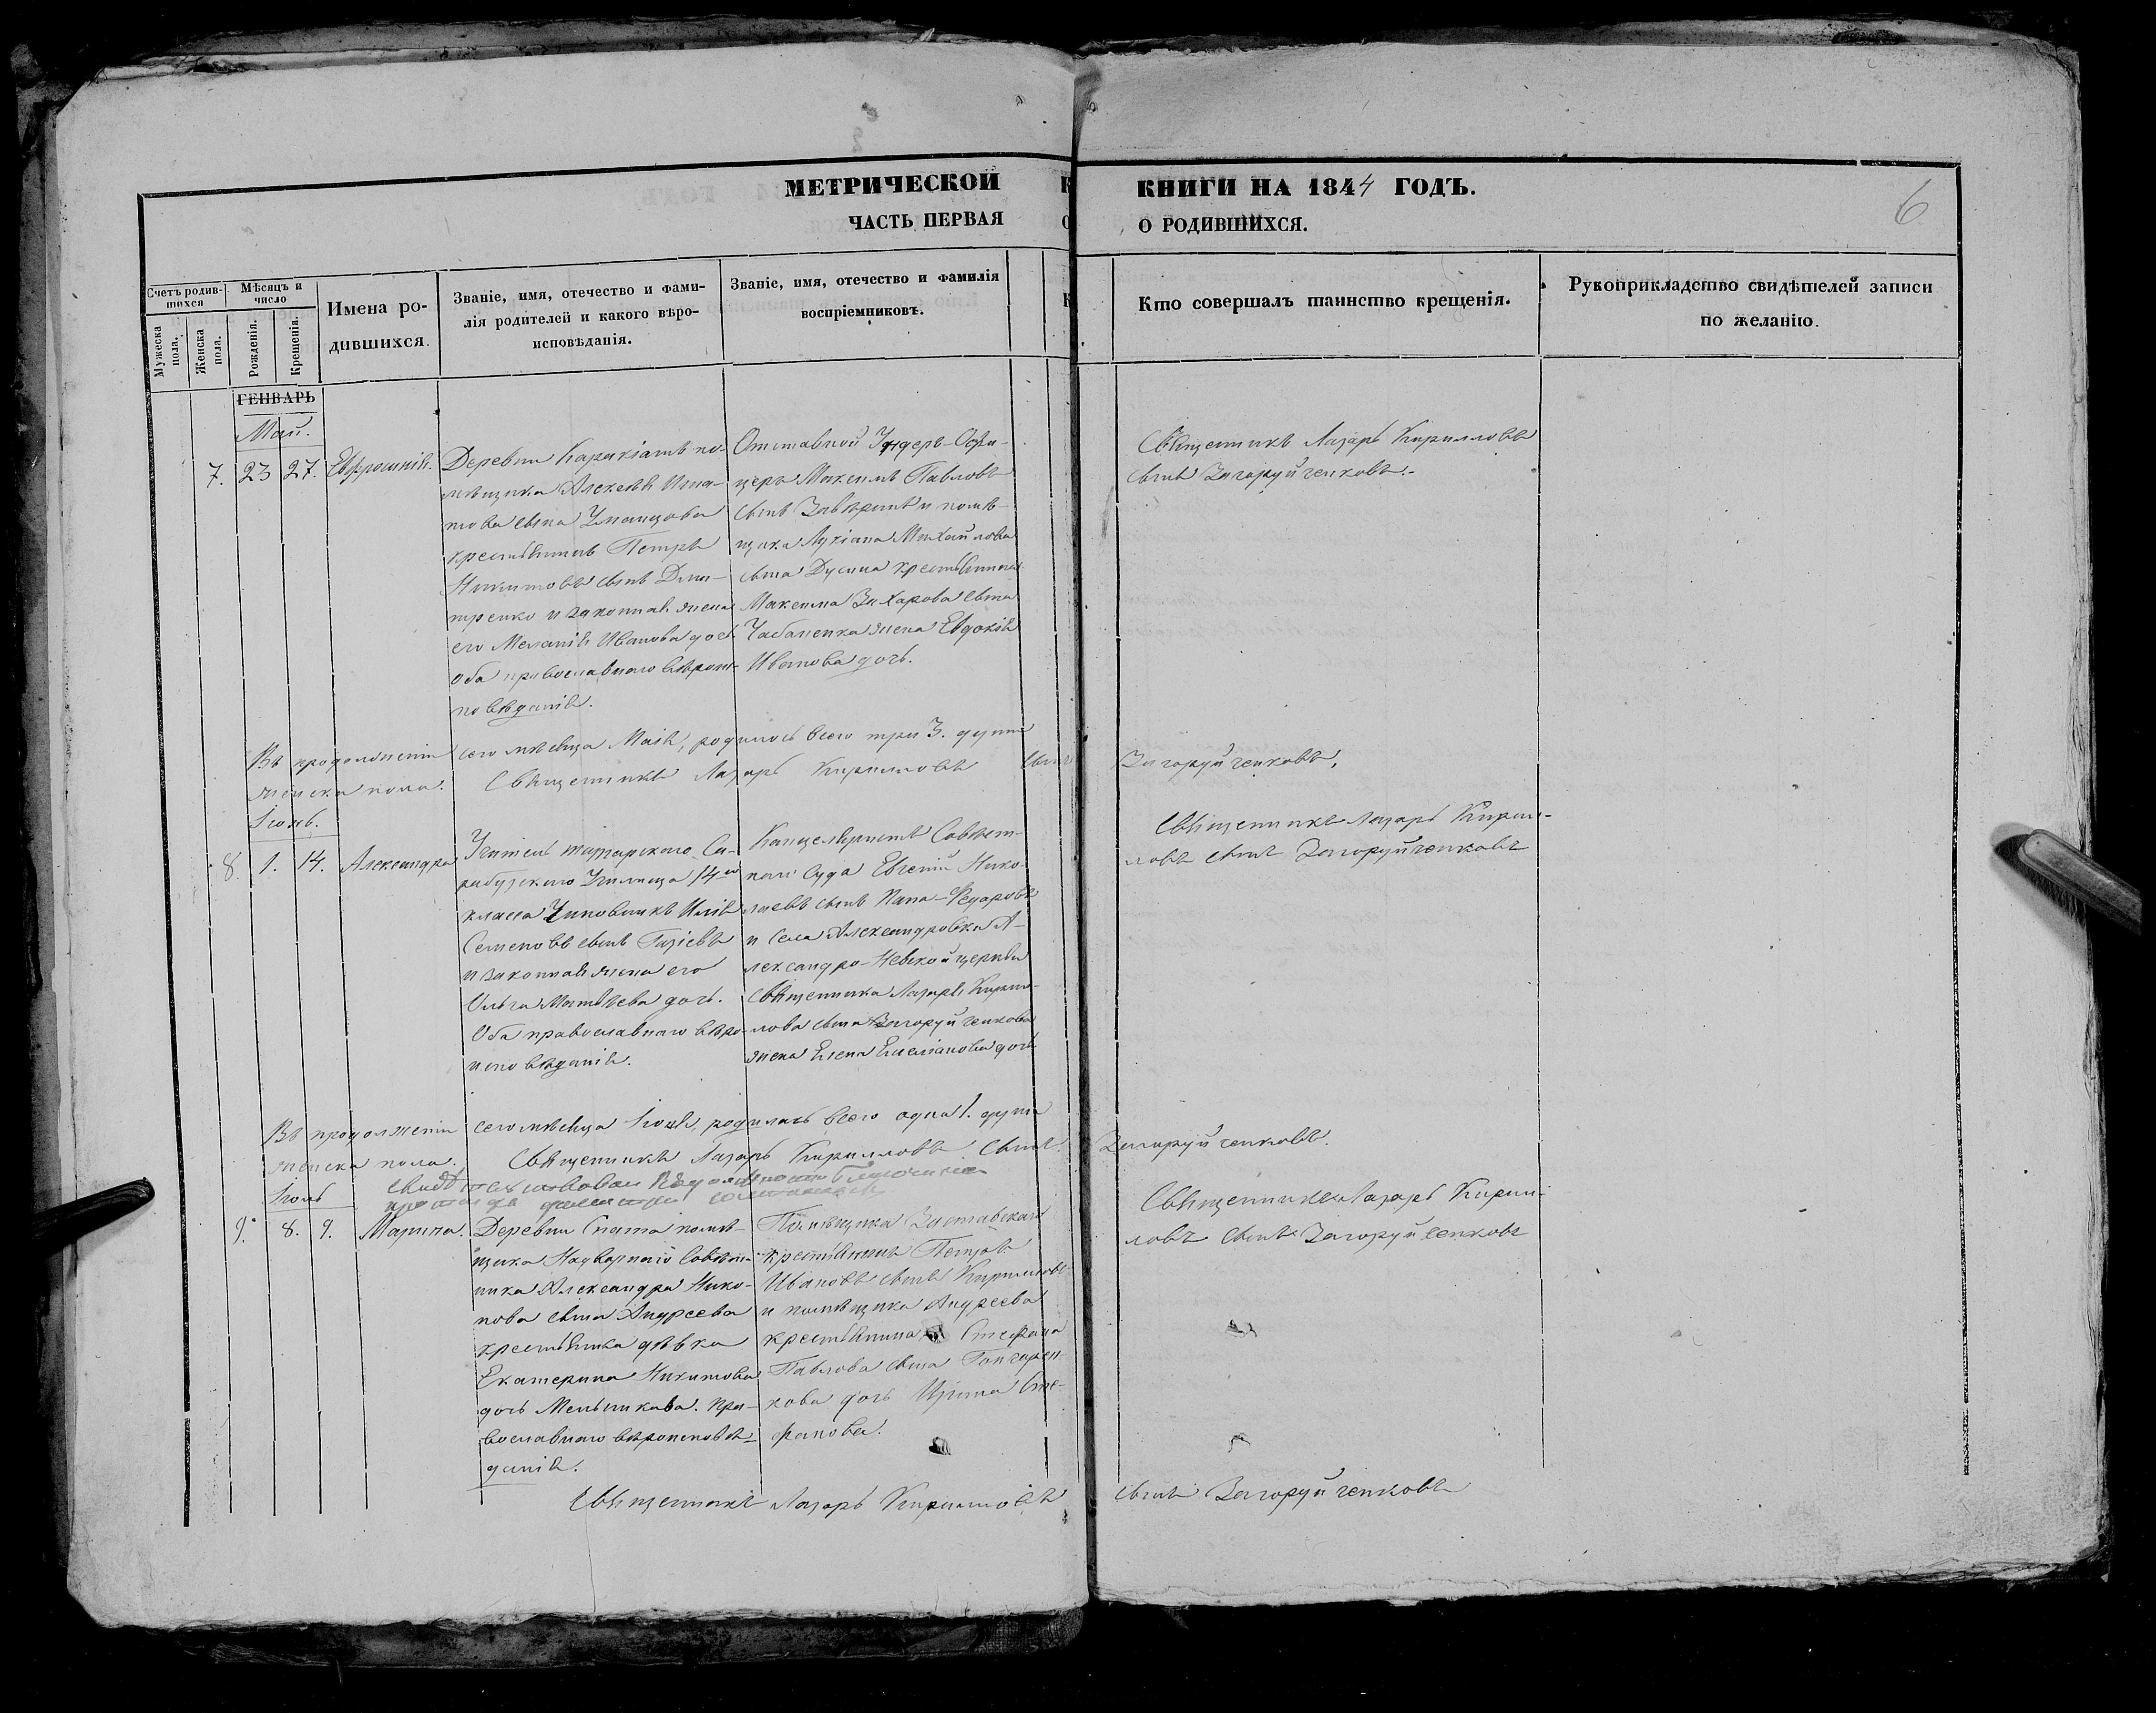 МЕТРИЧЕСКОЙ
КНИГИ НА 1844 ГОДЪ.
ЧАСТЬ ПЕРВАЯ
О РОДИВШИХСЯ.
6
Счетъ родив-
шихся
Мужеска пола.
Женска пола.
Мѣсяцъ и
число
Рожденія.
Крещенія.
Имена ро-
дившихся.
Званіе, имя, отечество и фами-
лія родителей и какого вѣро-
исповѣданія.
Званіе, имя, отечество и фамилія
воспріемниковъ.
Кто совершалъ таинство крещенія.
Рукоприкладство свидѣтелей записи
по желанію.
ГЕНВАРЬ
Май.
7. 23 27. Евфросинія.
Деревни по-
мѣщика Алексѣя Игна-
това сына
крестьянинъ Петръ
Никитовъ сынъ Дми-
тренко и законная жена
его Меланія Иванова дочь.
Оба православнаго вѣроис-
повѣданія.
Отставной Ундеръ-Офи-
церъ Максимъ Павловъ
сынъ и помѣ-
щика Лукіана Михайлова
сына крестьянина
Максима Захарова сына
Чабаненка жена Евдокія
Иванова дочь.
Священникъ Лазарь Кирилловъ
сынъ Загоруйченковъ.
Въ продолженіи сего мѣсяца Маія, родилось всего три 3. души
женска пола. Священникъ Лазарь Кирилловъ сынъ Загоруйченковъ.
Іюнь.
8. 1. 14. Александра
Учитель татарскаго Са-
рабузскаго Училища 14го
класса Чиновникъ Илія
Семеновъ сынъ
и законная жена его
Ольга Матвѣева дочь.
Оба православнаго вѣро-
исповѣданія.
Канцеляристъ Совѣст-
наго Суда Евгеній Нико-
лаевъ сынъ
и Села Александровки А-
лександро-Невской церкви
священника Лазаря Кирил-
лова сына Загоруйченкова
жена Елена Емеліанова дочь
Священникъ Лазарь Кирил-
ловъ сынъ Загоруйченковъ
Въ продолженіи сего мѣсяца Іюня, родилась всего одна 1. душа
женска пола. Священникъ Лазарь Кирилловъ сынъ Загоруйченковъ.
Іюль
9. 8. 9. Марина.
Деревни помѣ-
щика Надворнаго Совѣтни-
ка Александра Нико-
нова сына Андреева
крестьянка дѣвка
Екатерина Никитова
дочь Мельникова. Пра-
вославнаго вѣроисповѣ-
данія.
Помѣщика
крестьянинъ Петръ
Ивановъ сынъ Кирилловъ
и помѣщика Андреева
крестьянина Стефана
Павлова сына Гончарен-
кова дочь Ирина Сте-
фанова.
Священникъ Лазарь Кирил-
ловъ сынъ Загоруйченковъ
Священникъ Лазарь Кирилловъ сынъ Загоруйченковъ